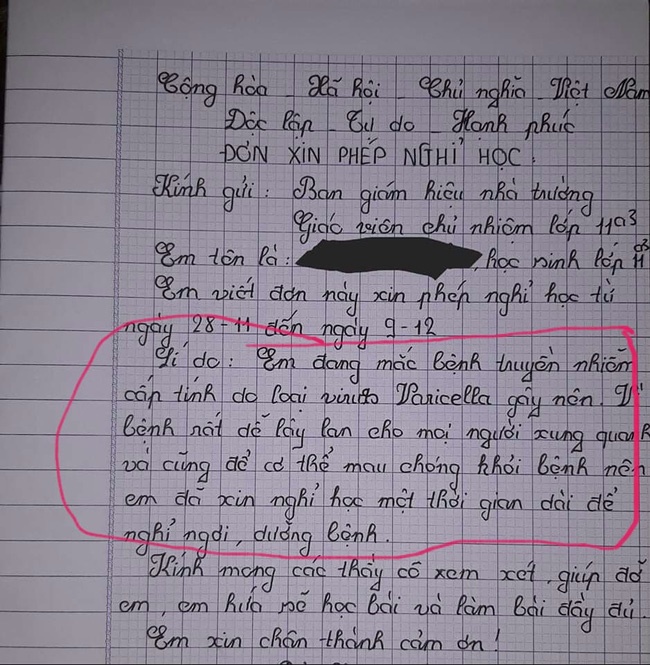 Cộng hòa - Xã hội - Chủ nghĩa - Việt Nam
Độc lập - Tự do - Hạnh phúc
ĐƠN XIN PHÉP NGHỈ HỌC.
Kính gửi: Ban giám hiệu nhà trường
Giáo viên chủ nhiệm lớp 11a3
Em tên là: , học sinh lớp 11a3
Em viết đơn này xin phép nghỉ học từ
ngày 28-11 đến ngày 9-12
Lí do: Em đang mắc bệnh truyền nhiễm
cấp tính do loại virút Varicella gây nên. Vì
bệnh rất dễ lây lan cho mọi người xung quanh
và cũng để có thể mau chóng khỏi bệnh nên
em đã xin nghỉ học một thời gian dài để
nghỉ ngơi, dưỡng bệnh.
Kính mong các thầy cô xem xét, giúp đỡ
em, em hứa sẽ học bài và làm bài đầy đủ.
Em xin chân thành cảm ơn!